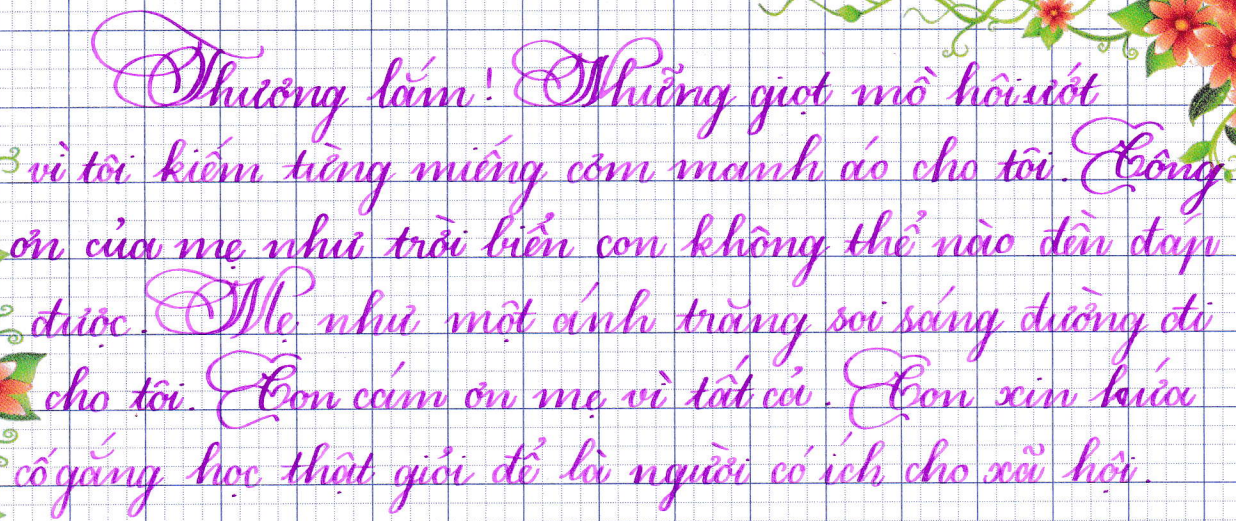 Thương lắm! Những giọt mồ hôi ướt
vì tôi kiếm từng miếng cơm manh áo cho tôi. Công
ơn của mẹ như trời biển con không thể nào đền đáp
được. Mẹ như một ánh trăng soi sáng đường đi
cho tôi. Con cám ơn mẹ vì tất cả. Con xin hứa
cố gắng học thật giỏi để là người có ích cho xã hội.